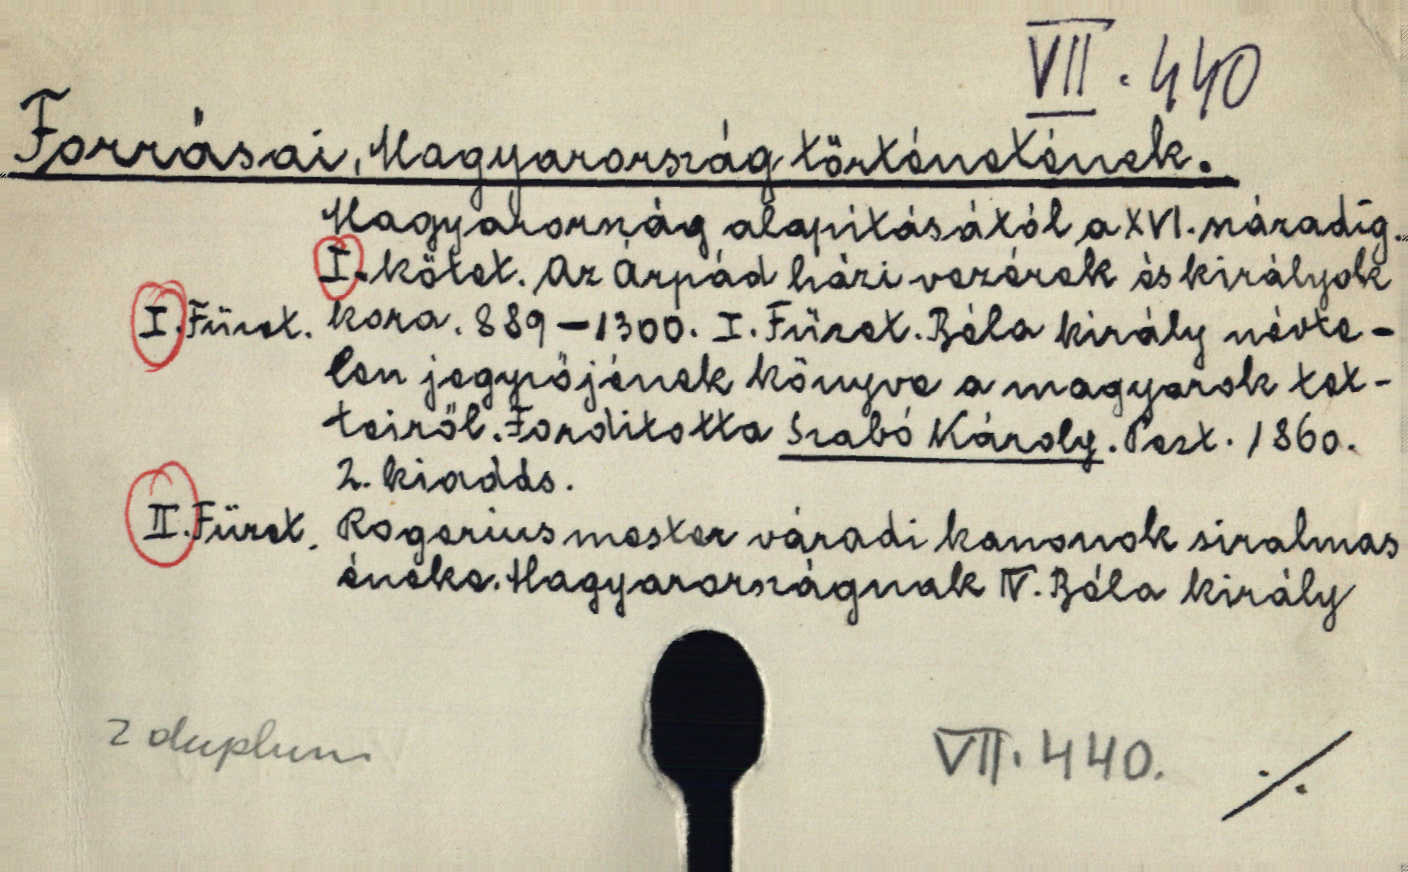 VII. 440
Forrásai, Magyarország történetének.
Magyarország alapitásától a XVI. századig.
I. kötet. Az Árpád házi vezérek és királyok
I. Füzet. kora. 889–1300. I. Füzet. Béla király névte-
len jegyzőjének könyve a magyarok tet-
teiről. Forditotta Szabó Károly. Pest. 1860.
2. kiadás.
II. Füzet. Rogerius mester váradi kanonok siralmas
éneke. Magyarországnak IV. Béla király
2 duplum
VII. 440. ./.